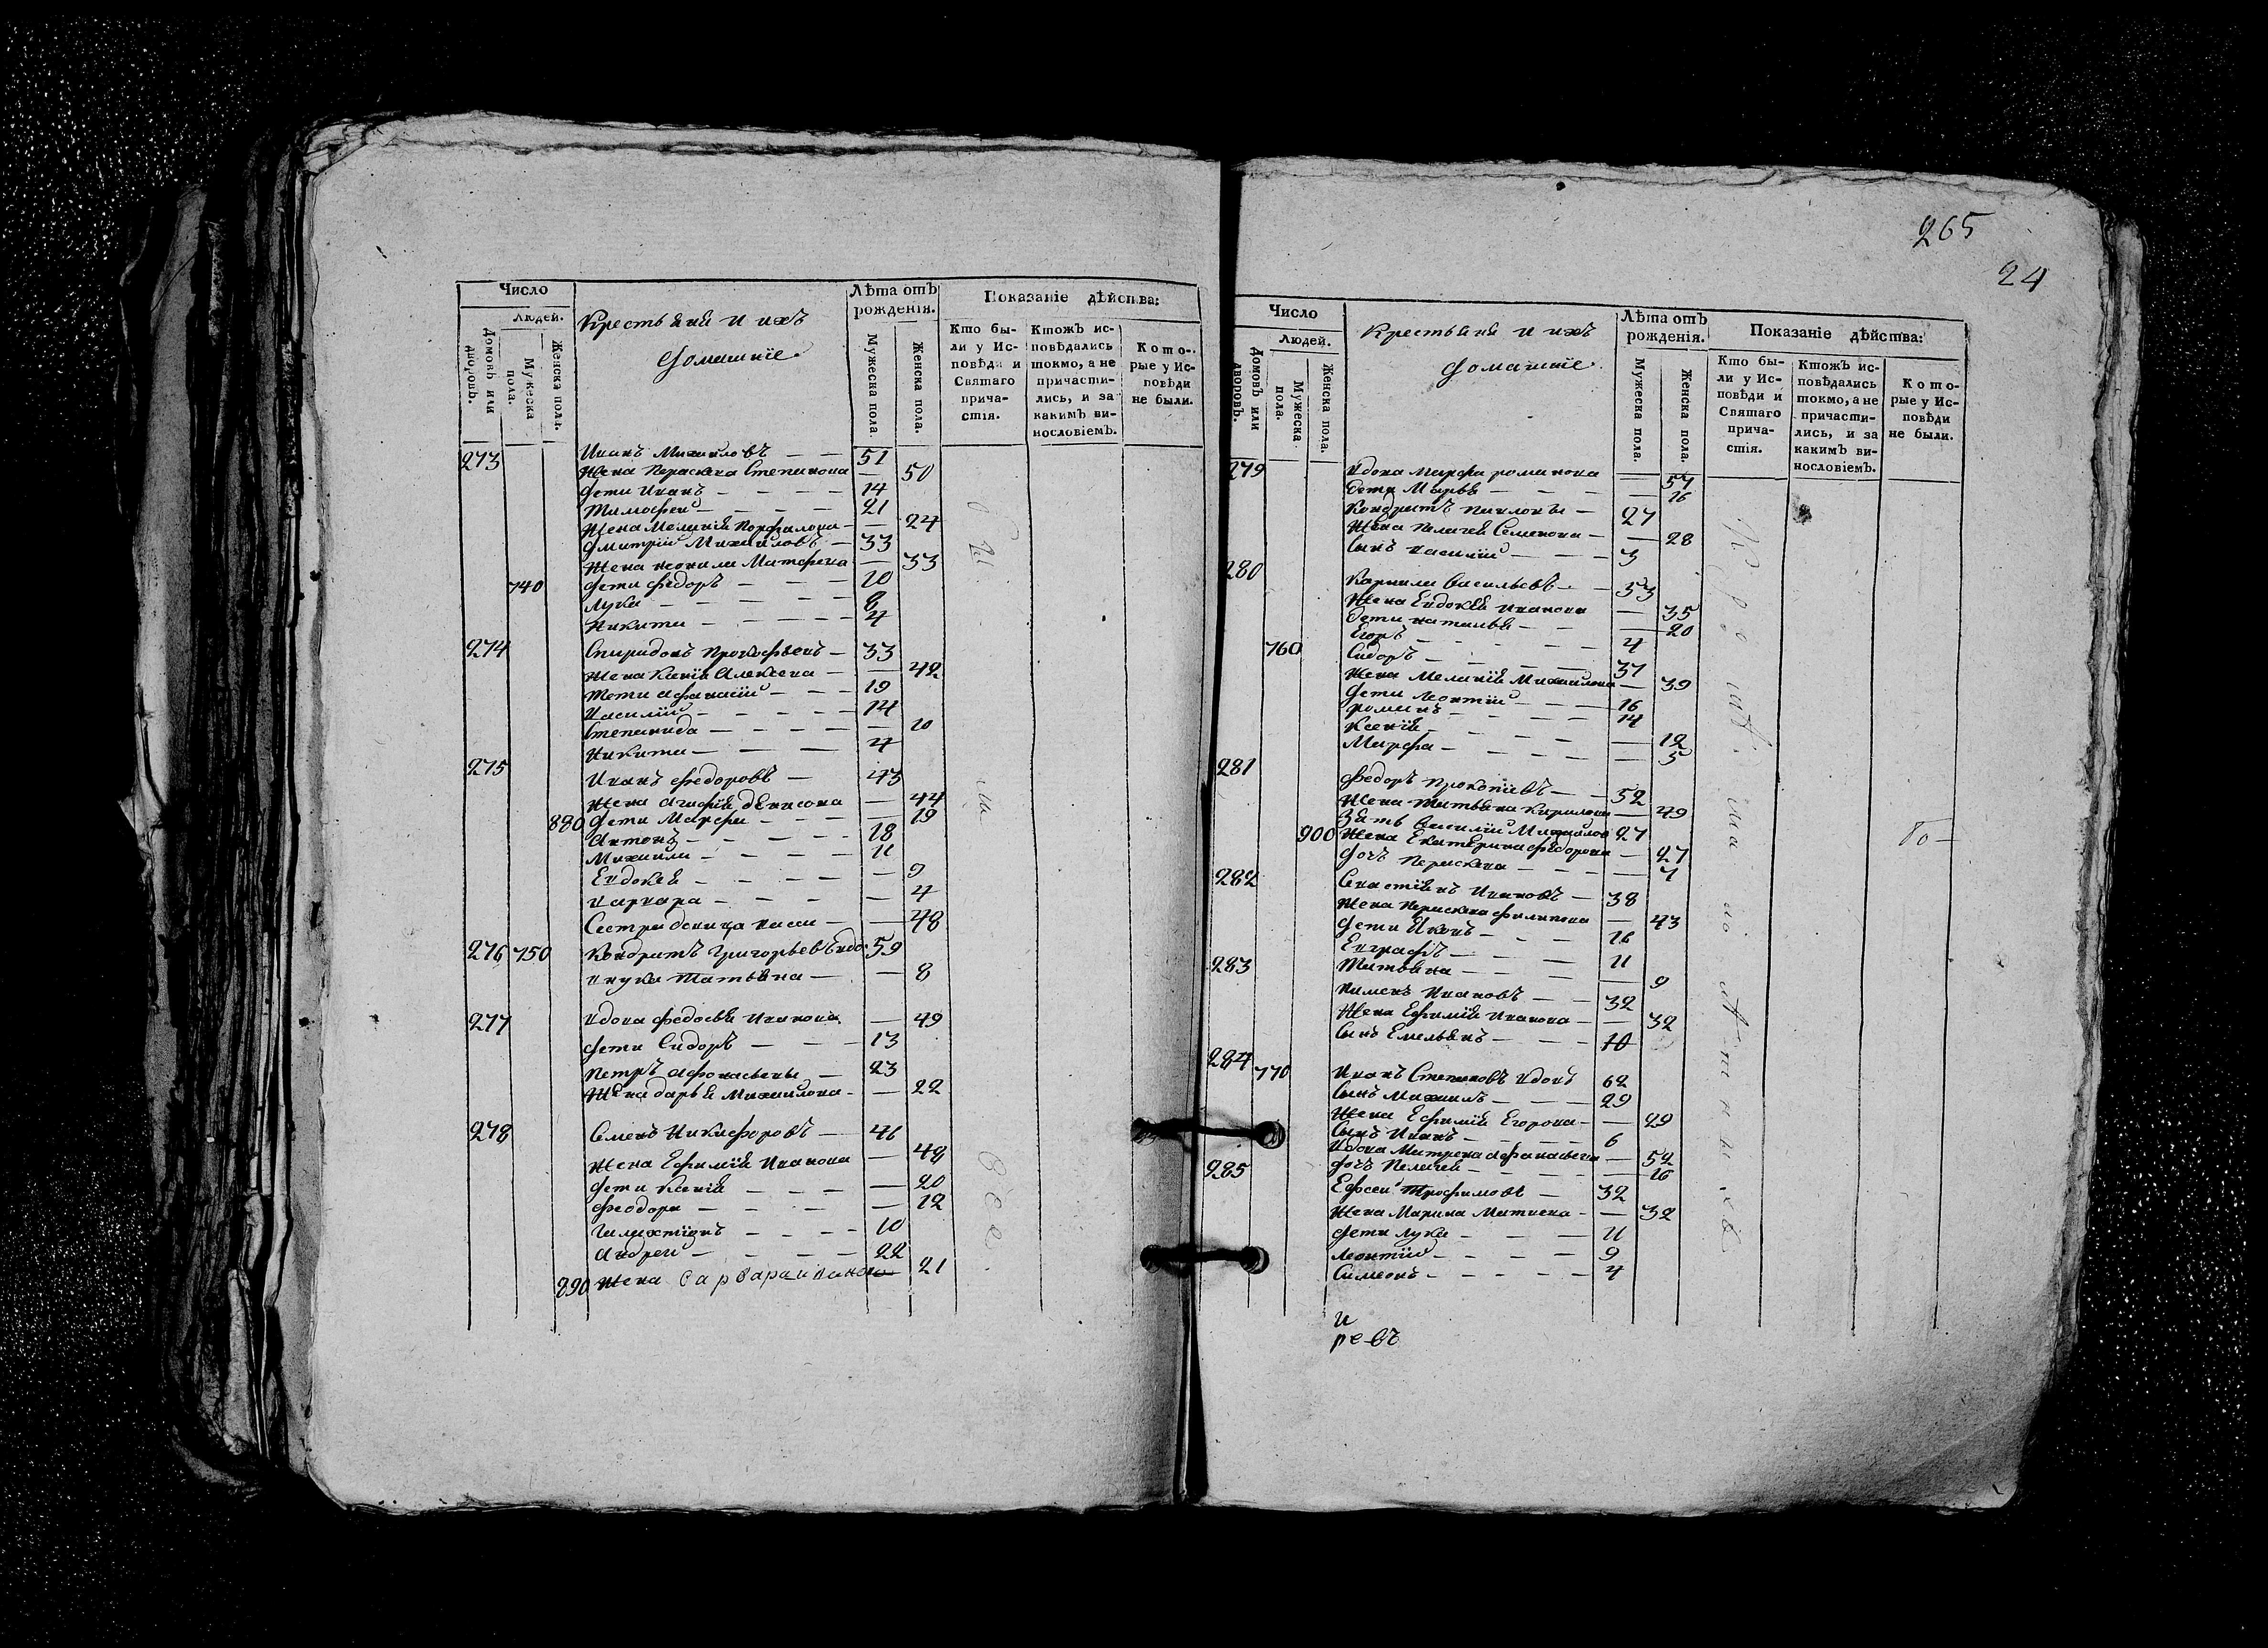 265
24
Число
Людей.
Домовъ или дворовъ.
Мужеска пола.
Женска пола.
Крестьяне и ихъ
домашніе
Лѣта отъ рожденія.
Мужеска пола.
Женска пола.
Показаніе дѣйства:
Кто были у Исповѣди и Святаго причастія.
Ктожъ исповѣдались токмо, а не причастились, и за какимъ винословіемъ.
Которые у Исповѣди не были.
273 Иванъ Михаиловъ — — 51
Жена Параскева Степанова — 50
Дети Иванъ — — — — 14
Тимофеи — — — — 21
Жена Меланія — — 24
Дмитріи Михаиловъ — 33
Жена Матфеева — 33
740 Дети Федоръ — — — 10
Лука — — — — — 8
Никита — — — — 4
274 Спиридонъ Прокофьевъ — 33
Жена Ксенія Алексеева — — 42
Дети Афанасіи — — — 19
Василіи — — — — 14
Степанида — — — — — 10
Никита — — — 4
275 Иванъ Федоровъ — 43
Жена Агафія Денисова — 44
880 Дети Марфа — — — — 19
Антонъ — — — — 18
Михаила — — — — 11
Евдокея — — — — — 9
Варвара — — — — — 4
Сестра девица — — 48
276 750 Кондратъ Григорьевъ вдо. 59
Внука Татьяна — — 8
277 Вдова Федосья Иванова — 49
Дети Сидоръ — — — 13
Петръ Афонасьевы — 23
Жена Дарья Михаилова — — 22
278 Семенъ Никифоровъ — 46
Жена Ефимія Иванова — 48
Дети Ксенія — — — — 20
Феодора — — — — — 12
— — — — 10
Андреи — — — — 22
890 Жена Варвара Иванова 21
были
все.
Число
Людей.
Домовъ или дворовъ.
Мужеска пола.
Женска пола.
Крестьяне и ихъ
домашніе
Лѣта отъ рожденія.
Мужеска пола.
Женска пола.
Показаніе дѣйства:
Кто были у Исповѣди и Святаго причастія.
Ктожъ исповѣдались токмо, а не причастились, и за какимъ винословіемъ.
Которые у Исповѣди не были.
279 Вдова Марфа Романова — 57
Дети Марья — — — — 16
Кондратъ Павловъ — 27
Жена Пелагея Семенова — — 28
Сынъ Василіи — — — 3
280 Карнила Васильевъ — 53
Жена Евдокея Иванова — 35
Дети Наталья — — — 20
Егоръ — — — — 4
760 Сидоръ — — — — 37
Жена Меланія Михаилова — 39
Дети Леонтіи — — — 16
Романъ — — — — 14
Ксенія — — — — 12
Марфа — — — — — 5
281 Федоръ Прокопіевъ — — 52
Жена Татьяна Кирилова — 49
Зять Василіи Михаилов 27
900 Жена Екатерина Федорова — 27
Дочь Параскева — — — — 7
282 Савастіянъ Ивановъ — 38
Жена Параскева Филипова — 43
Дети Яковъ — — — 16
Евграфъ — — — 11
Татьяна — — — — 9
283 Пименъ Ивановъ — — 32
Жена Ефимія Иванова — — 32
Сынъ Емельянъ — — — 10
284 770 Иванъ Степановъ вдовъ 62
Сынъ Михаилъ — — — 29
Жена Ефимія Егорова — — 29
Сынъ Иванъ — — — — 6
Вдова Матрена Афанасьева — 52
Дочь Пелагея — — — — 16
285 Ефсеи Трофимовъ — 32
Жена Марина Матвеева — — 32
Дети Лука — — — 11
Леонтіи — — — — 9
Симеонъ — — — — 4
Кроме
и
ре-въ